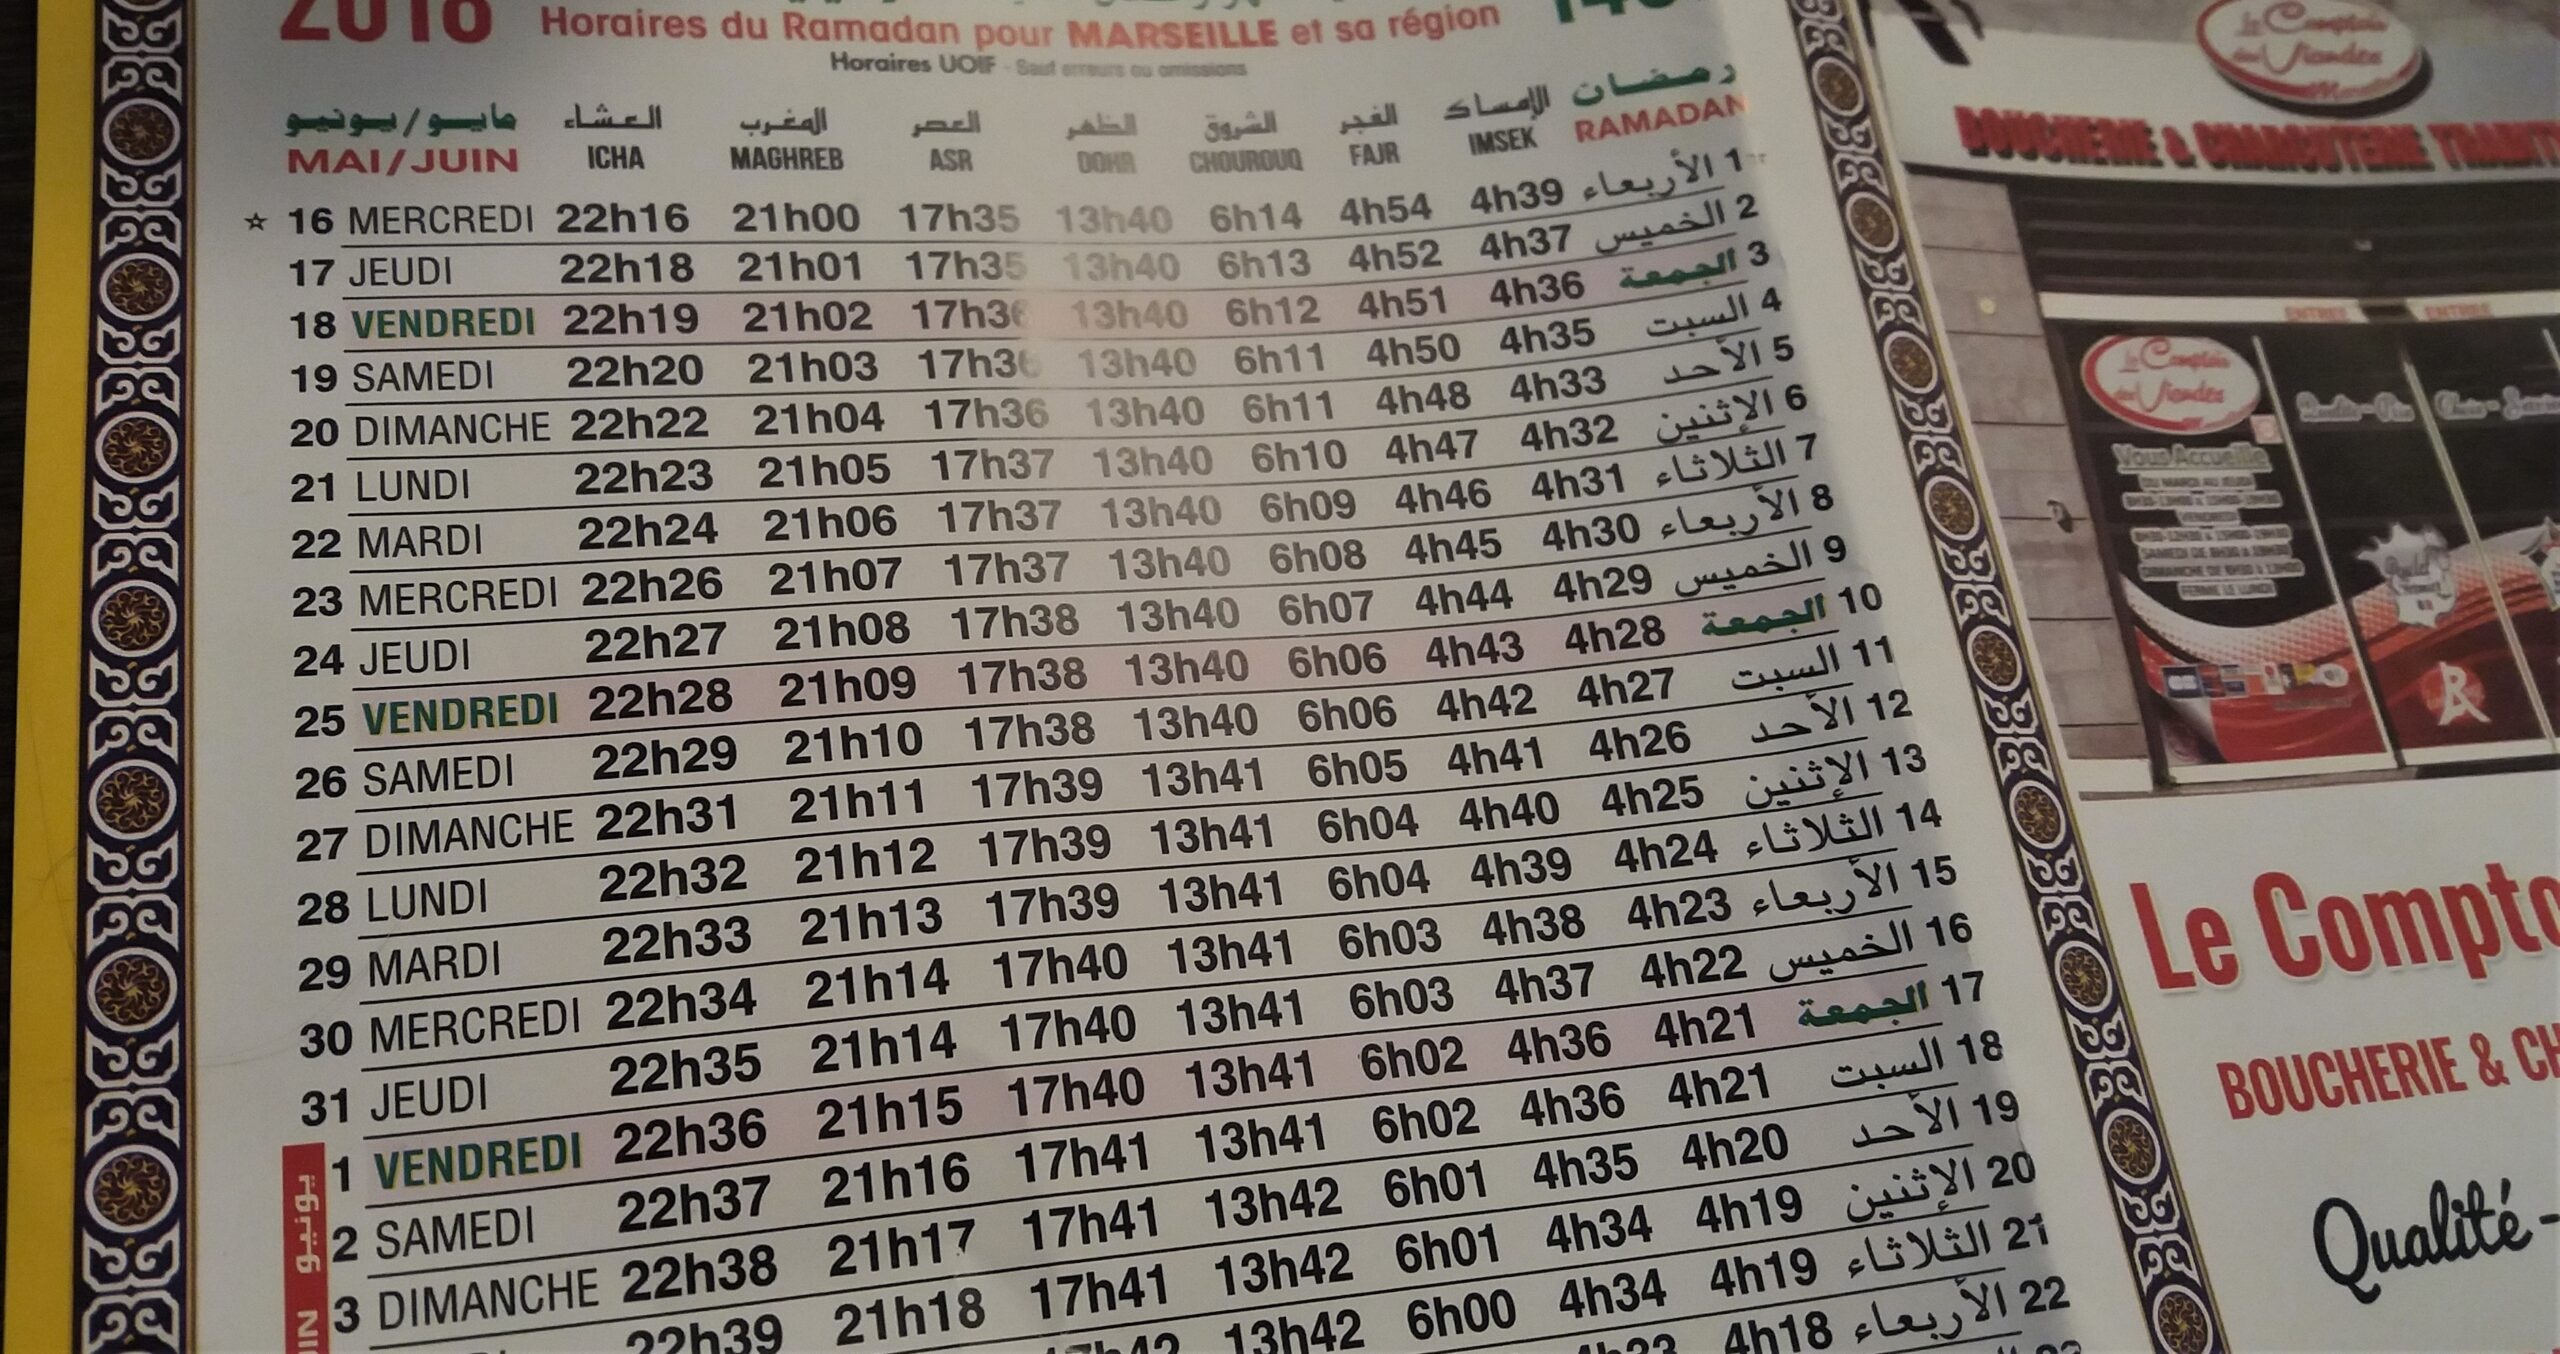 2018 Horaires du Ramadan pour MARSEILLE et sa région
Horaires UOIF - Sauf erreurs ou omissions
مايو/يونيو العشاء المغرب العصر الظهر الشروق الفجر الإمساك رمضان
MAI/JUIN ICHA MAGHREB ASR DOHR CHOUROUQ FAJR IMSEK RAMADAN
☆ 16 MERCREDI 22h16 21h00 17h35 13h40 6h14 4h54 4h39 الأربعاء 1
17 JEUDI 22h18 21h01 17h35 13h40 6h13 4h52 4h37 الخميس 2
18 VENDREDI 22h19 21h02 17h36 13h40 6h12 4h51 4h36 الجمعة 3
19 SAMEDI 22h20 21h03 17h36 13h40 6h11 4h50 4h35 السبت 4
20 DIMANCHE 22h22 21h04 17h36 13h40 6h11 4h48 4h33 الأحد 5
21 LUNDI 22h23 21h05 17h37 13h40 6h10 4h47 4h32 الإثنين 6
22 MARDI 22h24 21h06 17h37 13h40 6h09 4h46 4h31 الثلاثاء 7
23 MERCREDI 22h26 21h07 17h37 13h40 6h08 4h45 4h30 الأربعاء 8
24 JEUDI 22h27 21h08 17h38 13h40 6h07 4h44 4h29 الخميس 9
25 VENDREDI 22h28 21h09 17h38 13h40 6h06 4h43 4h28 الجمعة 10
26 SAMEDI 22h29 21h10 17h38 13h40 6h06 4h42 4h27 السبت 11
27 DIMANCHE 22h31 21h11 17h39 13h41 6h05 4h41 4h26 الأحد 12
28 LUNDI 22h32 21h12 17h39 13h41 6h04 4h40 4h25 الإثنين 13
29 MARDI 22h33 21h13 17h39 13h41 6h04 4h39 4h24 الثلاثاء 14
30 MERCREDI 22h34 21h14 17h40 13h41 6h03 4h38 4h23 الأربعاء 15
31 JEUDI 22h35 21h14 17h40 13h41 6h03 4h37 4h22 الخميس 16
1 VENDREDI 22h36 21h15 17h40 13h41 6h02 4h36 4h21 الجمعة 17
2 SAMEDI 22h37 21h16 17h41 13h41 6h02 4h36 4h21 السبت 18
3 DIMANCHE 22h38 21h17 17h41 13h42 6h01 4h35 4h20 الأحد 19
22h39 21h18 17h41 13h42 6h01 4h34 4h19 الإثنين 20
17h42 13h42 6h00 4h34 4h19 الثلاثاء 21
4h18 الأربعاء 22
يونيو
Le Comptoir des Viandes
BOUCHERIE & CHARCUTERIE TRADIT
ENTREE ENTREE
Le Comptoir des Viandes
Vous Accueille
DU MARDI AU JEUDI
VENDREDI
FERME LE LUNDI
Le Compto
BOUCHERIE & CH
Qualité -